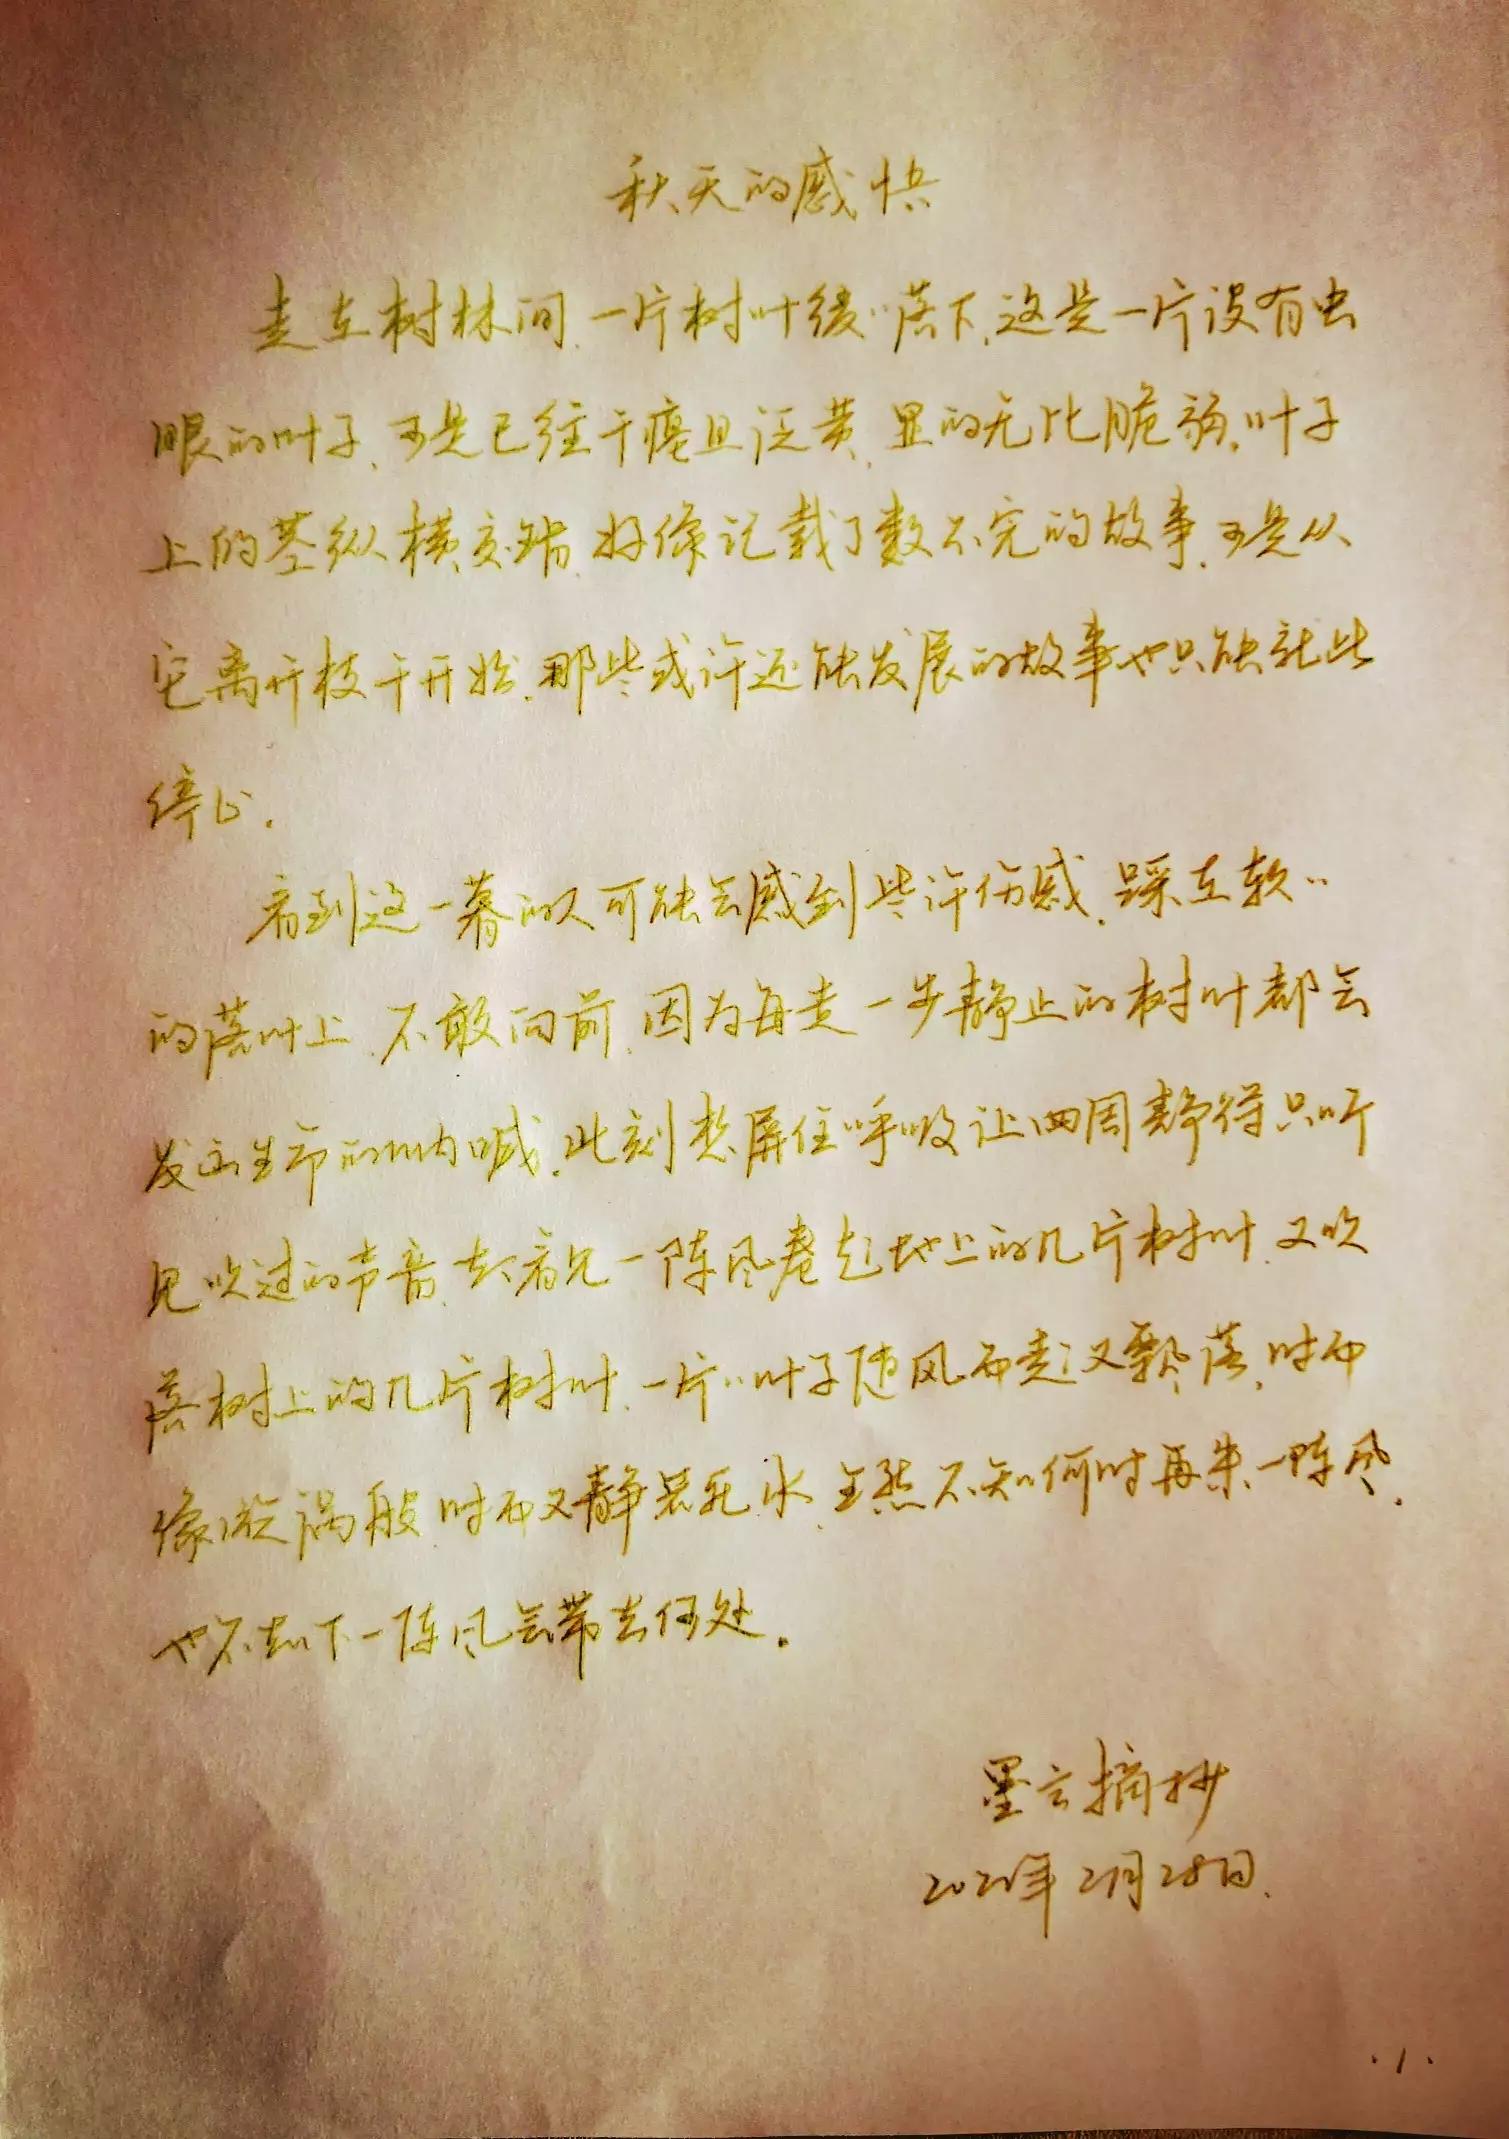 秋天的感怅
走在树林间,一片树叶缓〻落下,这是一片没有虫
眼的叶子,可是已经干瘪且泛黄,显的无比脆弱,叶子
上的茎纵横交错,好像记载了数不完的故事,可是从
它离开枝干开始,那些或许还能发展的故事也只能就此
停止.
看到这一幕的人可能会感到些许伤感,踩在软〻
的落叶上,不敢向前,因为每走一步静止的树叶都会
发出生命的呐喊,此刻想屏住呼吸让四周静得只听
见吹过的声音,去看见一阵风卷起地上的几片树叶,又吹
落树上的几片树叶,一片〻叶子随风而起又飘落,时而
像漩涡般,时而又静若死水,全然不知何时再来一阵风,
也不知下一阵风会带去何处.
墨云摘抄
年2月28日.
·1·